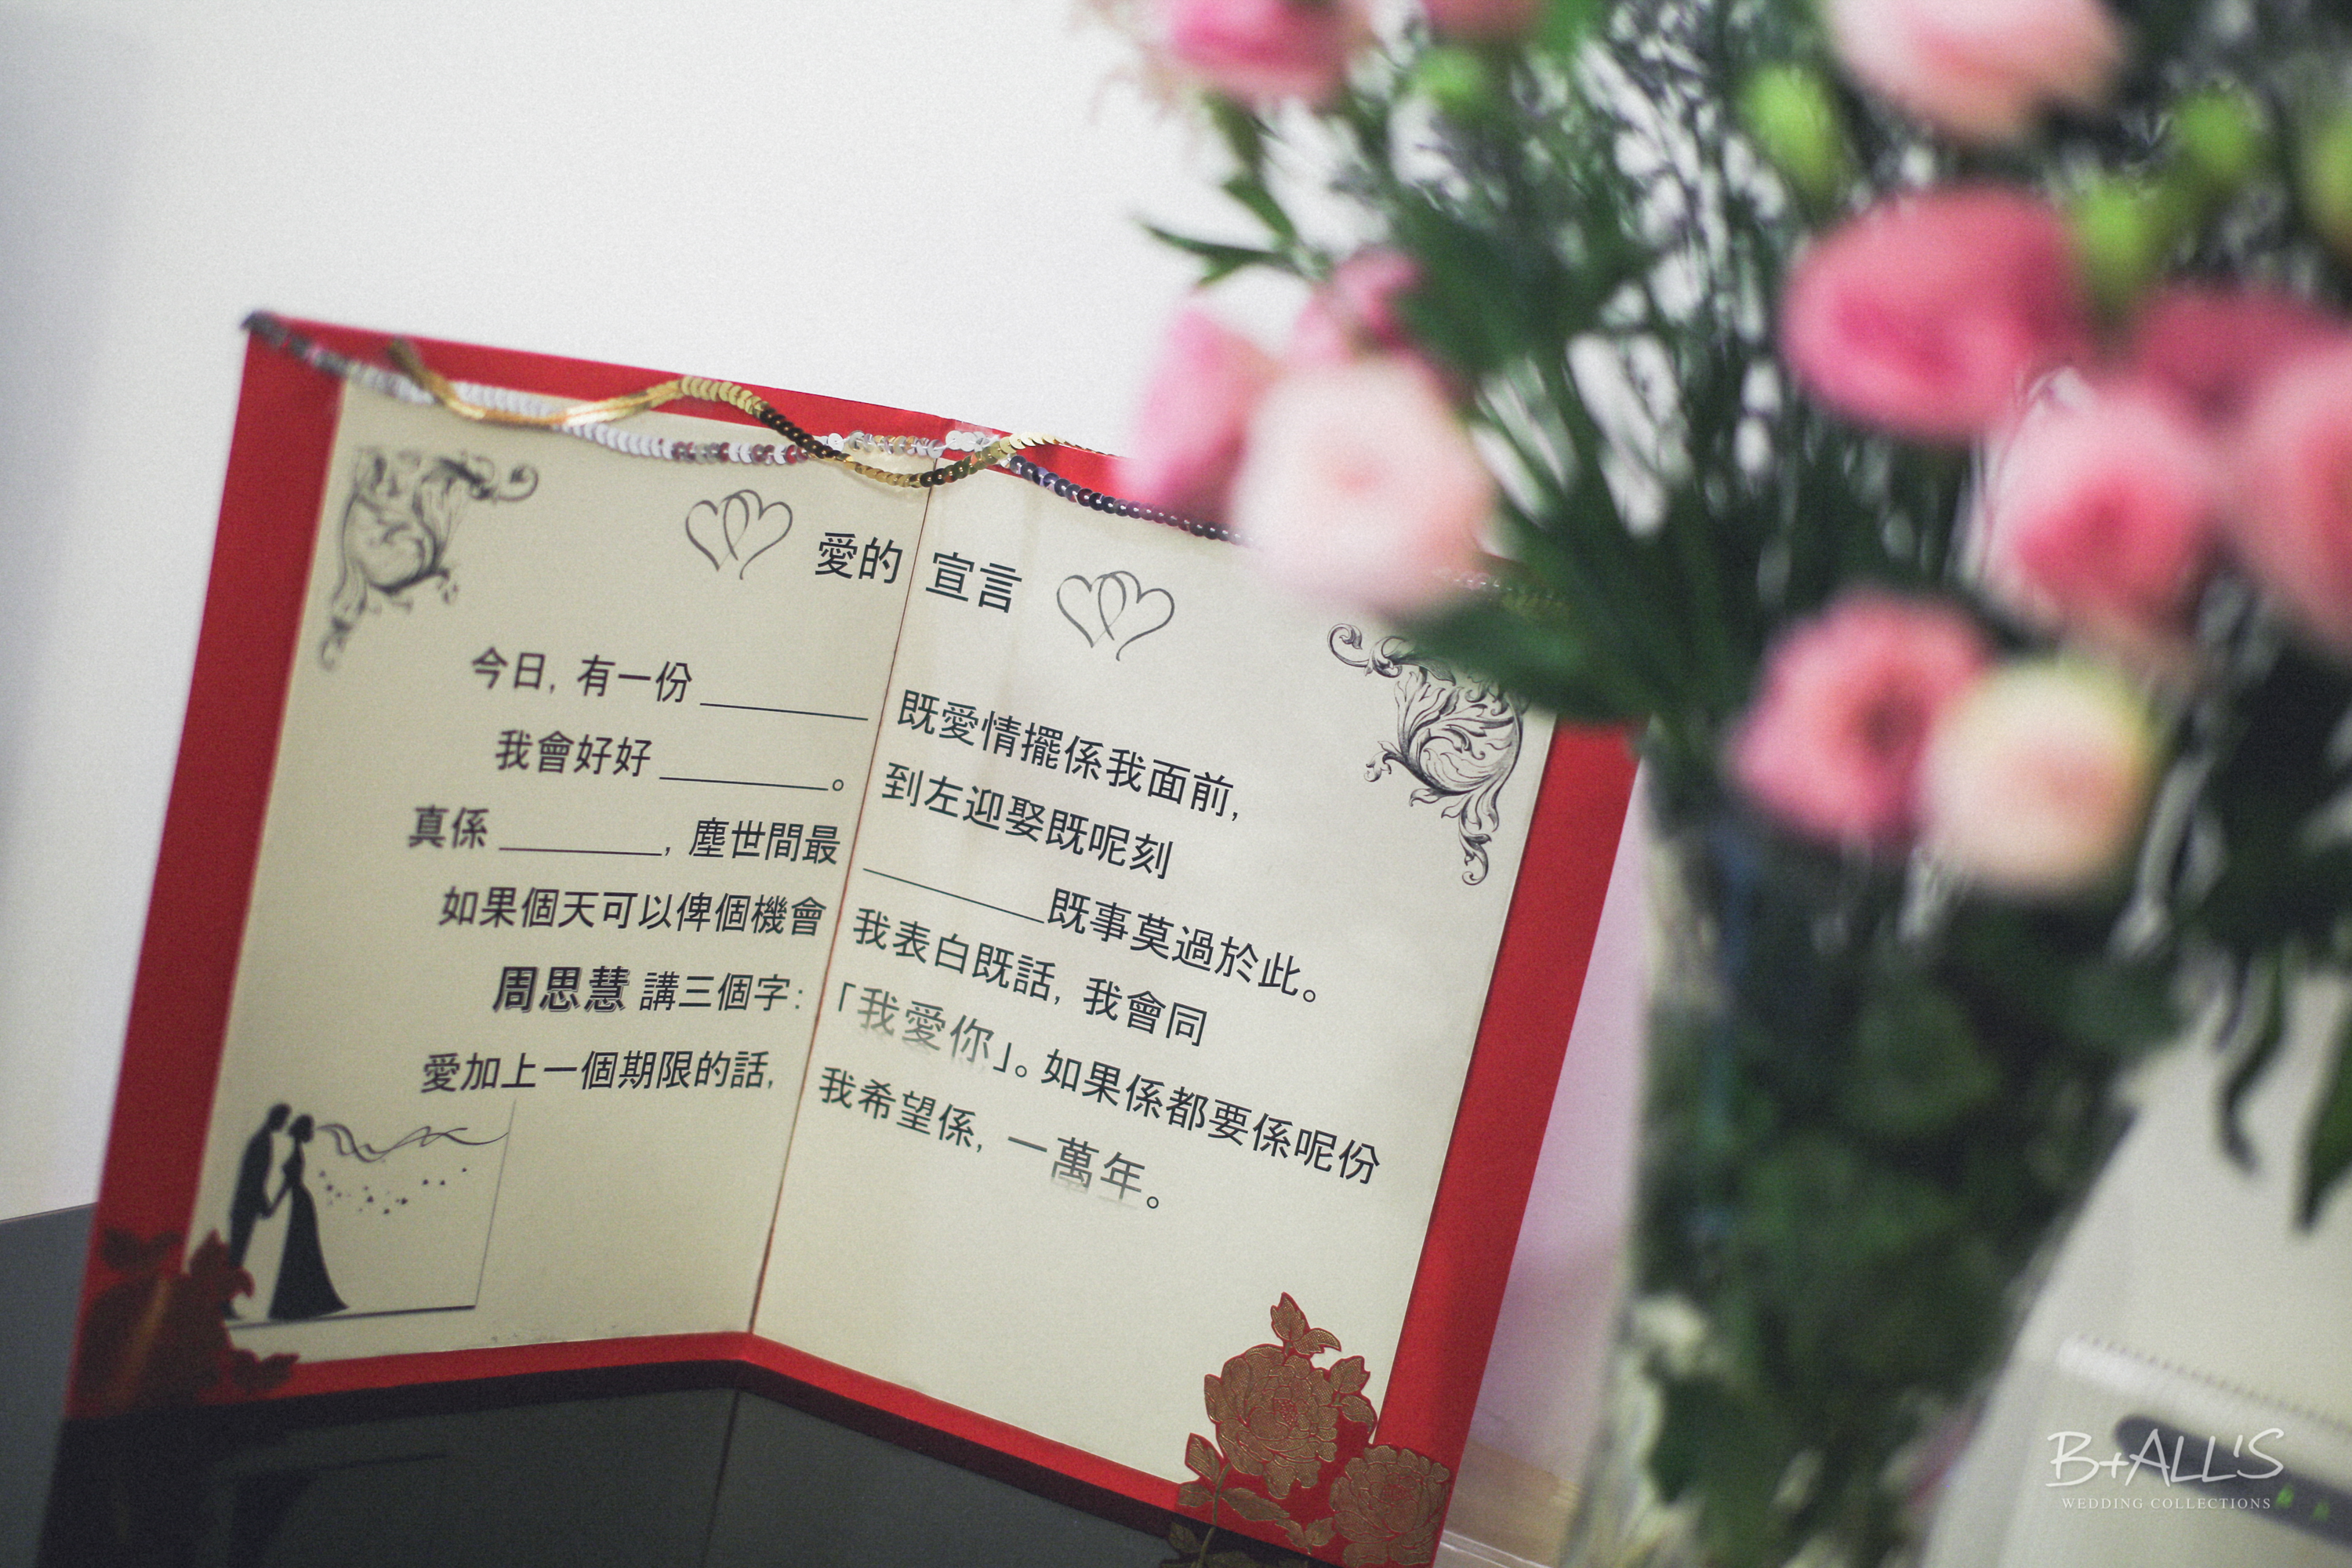 愛的 宣言
今日, 有一份 ________ 既愛情擺係我面前,
我會好好 ________。 到左迎娶既呢刻
真係 ________, 塵世間最 ________既事莫過於此。
如果個天可以俾個機會 我表白既話, 我會同
周思慧 講三個字: 「我愛你」。如果係都要係呢份
愛加上一個期限的話, 我希望係, 一萬年。
B+ALL'S
WEDDING COLLECTIONS